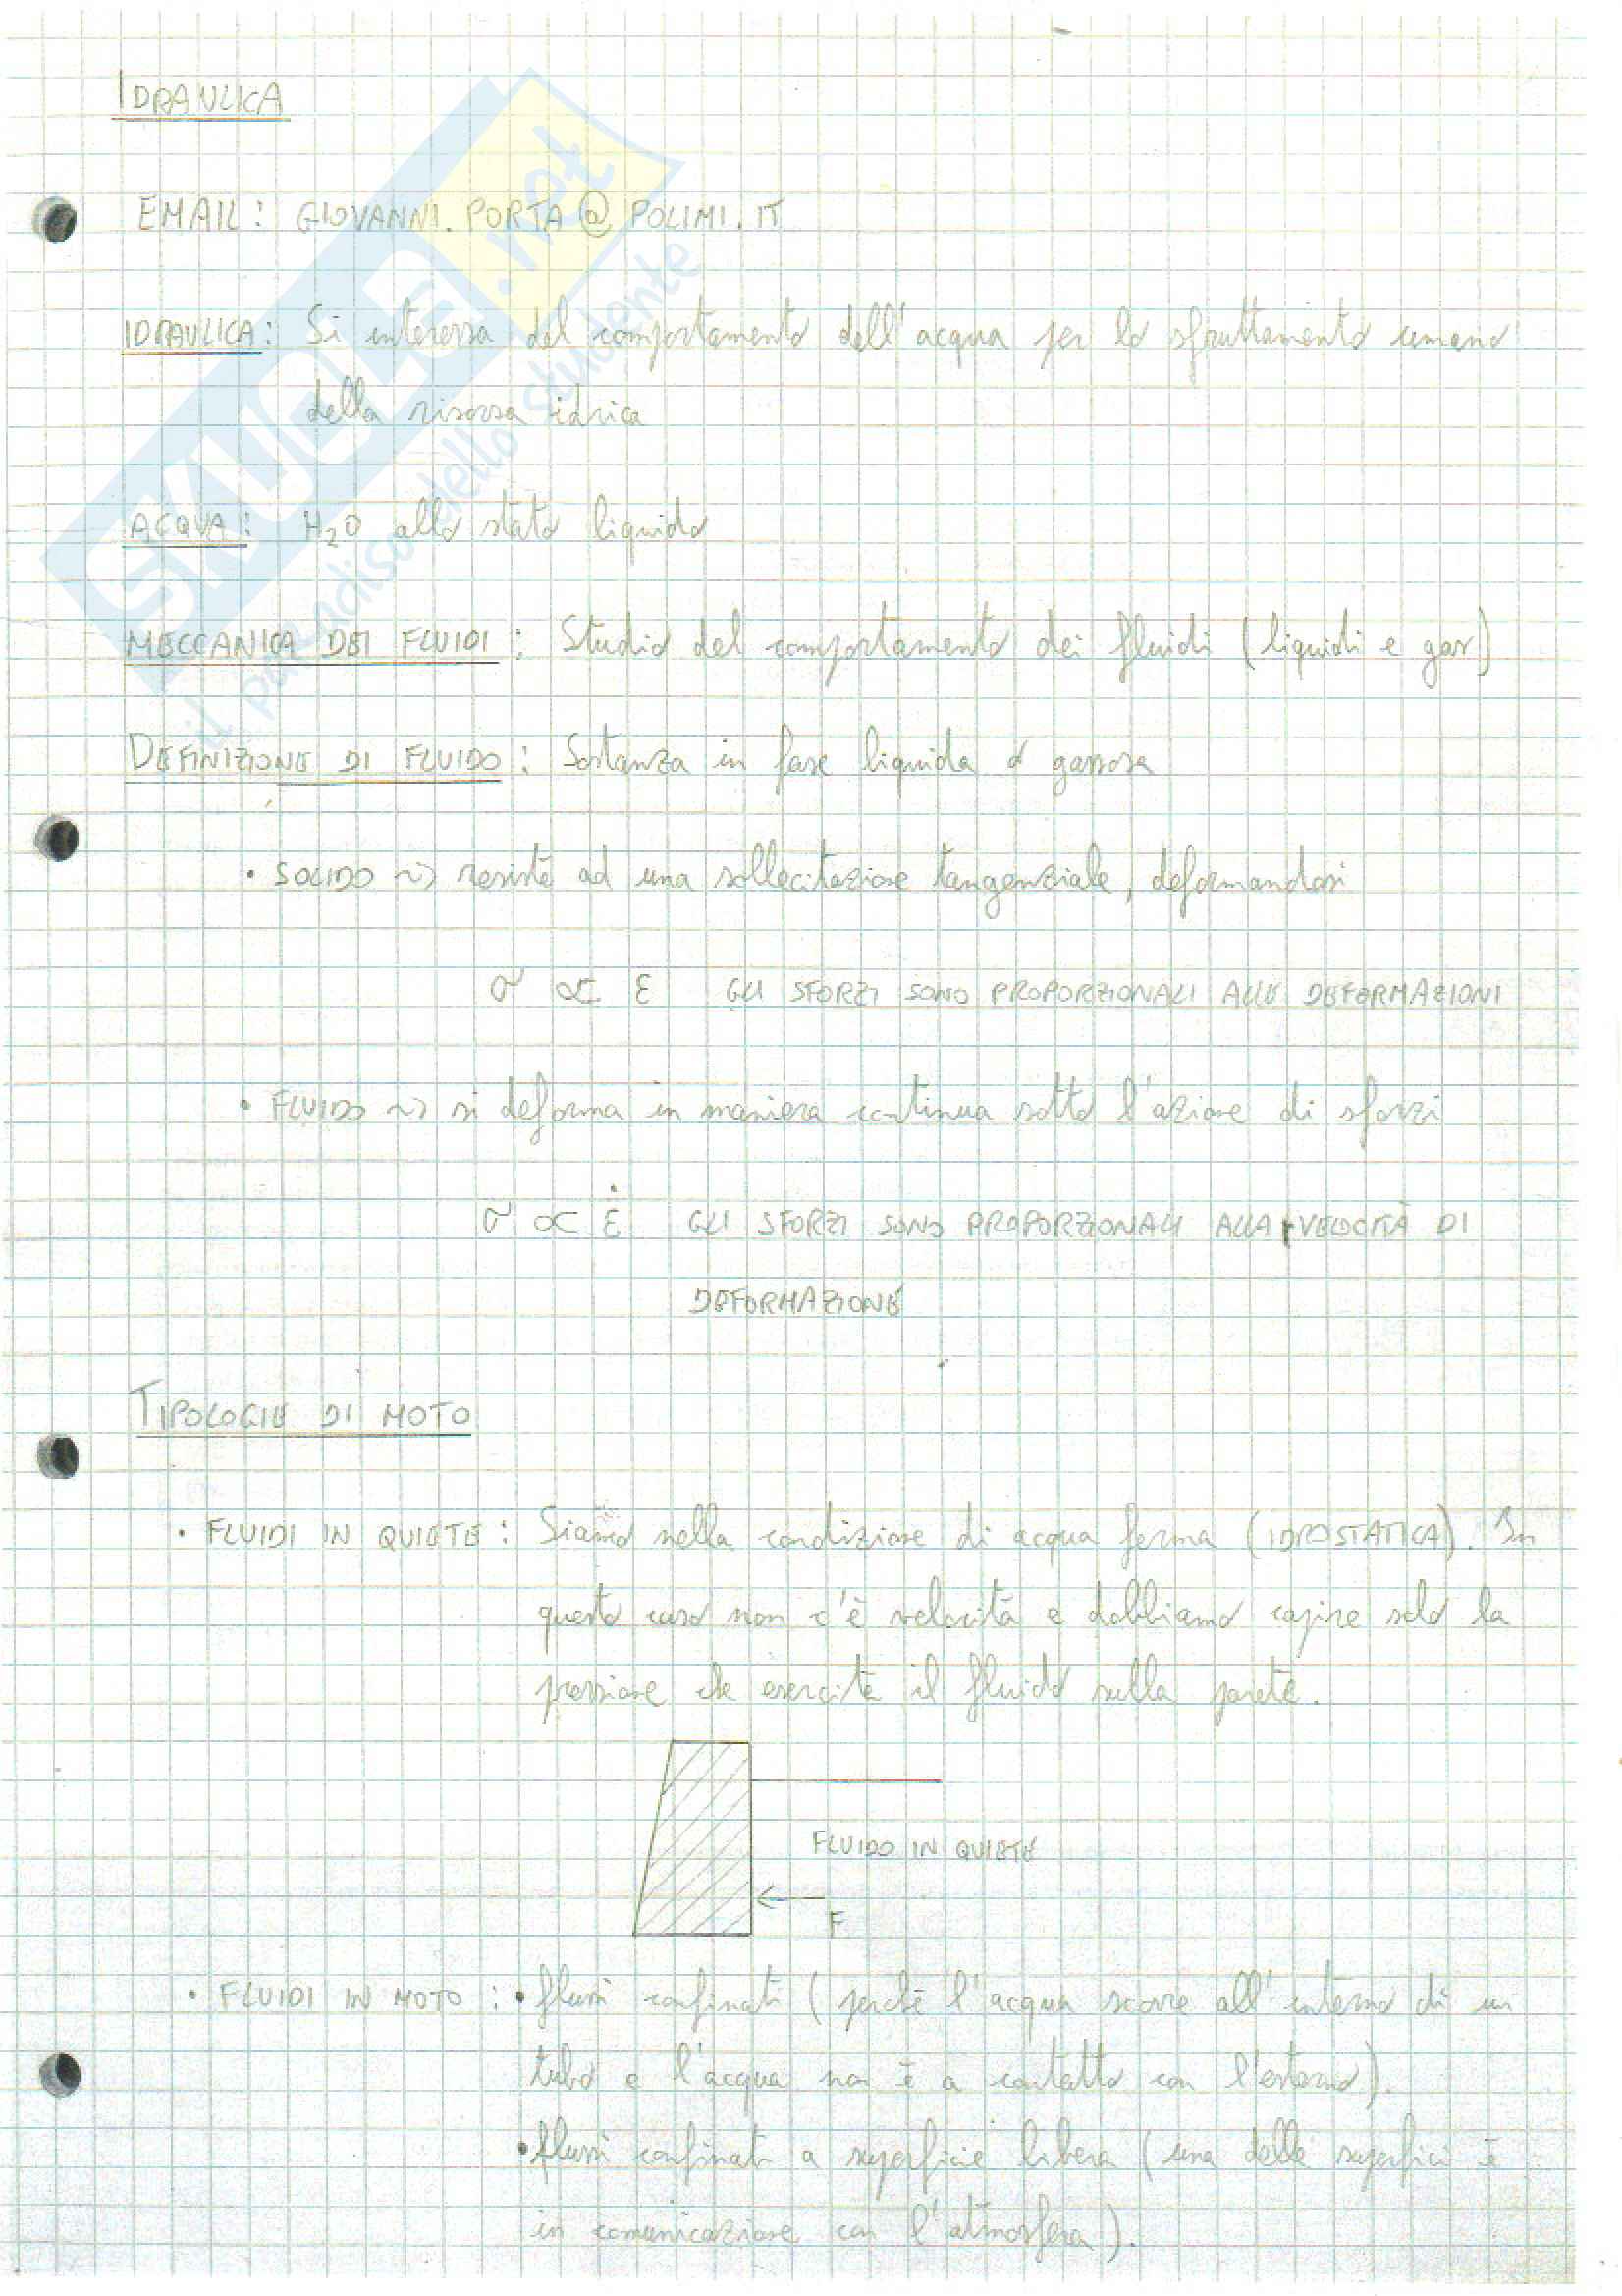 IDRAULICA
EMAIL: GIOVANNI.PORTA@POLIMI.IT
IDRAULICA: Si interessa del comportamento dell'acqua per lo sfruttamento umano
della risorsa idrica
ACQUA: H2O allo stato liquido
MECCANICA DEI FLUIDI: Studio del comportamento dei fluidi (liquidi e gas)
DEFINIZIONE DI FLUIDO: Sostanza in fase liquida o gassosa
• SOLIDO ~> resiste ad una sollecitazione tangenziale, deformandosi
σ ∝ ε GLI SFORZI SONO PROPORZIONALI ALLE DEFORMAZIONI
• FLUIDO ~> si deforma in maniera continua sotto l'azione di sforzi
σ ∝ ε̇ GLI SFORZI SONO PROPORZIONALI ALLA VELOCITÀ DI
DEFORMAZIONE
TIPOLOGIE DI MOTO
• FLUIDI IN QUIETE: Siamo nella condizione di acqua ferma (IDROSTATICA). In
questo caso non c'è velocità e dobbiamo capire solo la
pressione che esercita il fluido sulla parete.
FLUIDO IN QUIETE
F
• FLUIDI IN MOTO: • flussi confinati (perchè l'acqua scorre all'interno di un
tubo e l'acqua non è a contatto con l'esterno).
• flussi confinati a superficie libera (una delle superfici è
in comunicazione con l'atmosfera).
SKUOLA.net
il paradiso dello studente